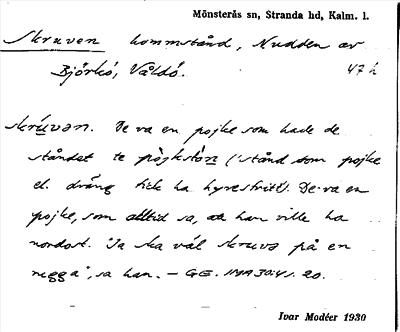 Mönsterås sn, Stranda hd, Kalm. l.
Skruven kommstånd, Nudden av
Björkö, Våldö. 47 h
skrúvən. De va en pojke som hade de
ståndet te pòjkstòn (stånd som pojke
el. dräng fick ha hyresfritt). De va en
pojke, som alltid sa, att han ville ha
nordost. "Ja ska väl skruva på en
regga", sa han. – GE. IMA 30:41. 20.
Ivar Modéer 1930